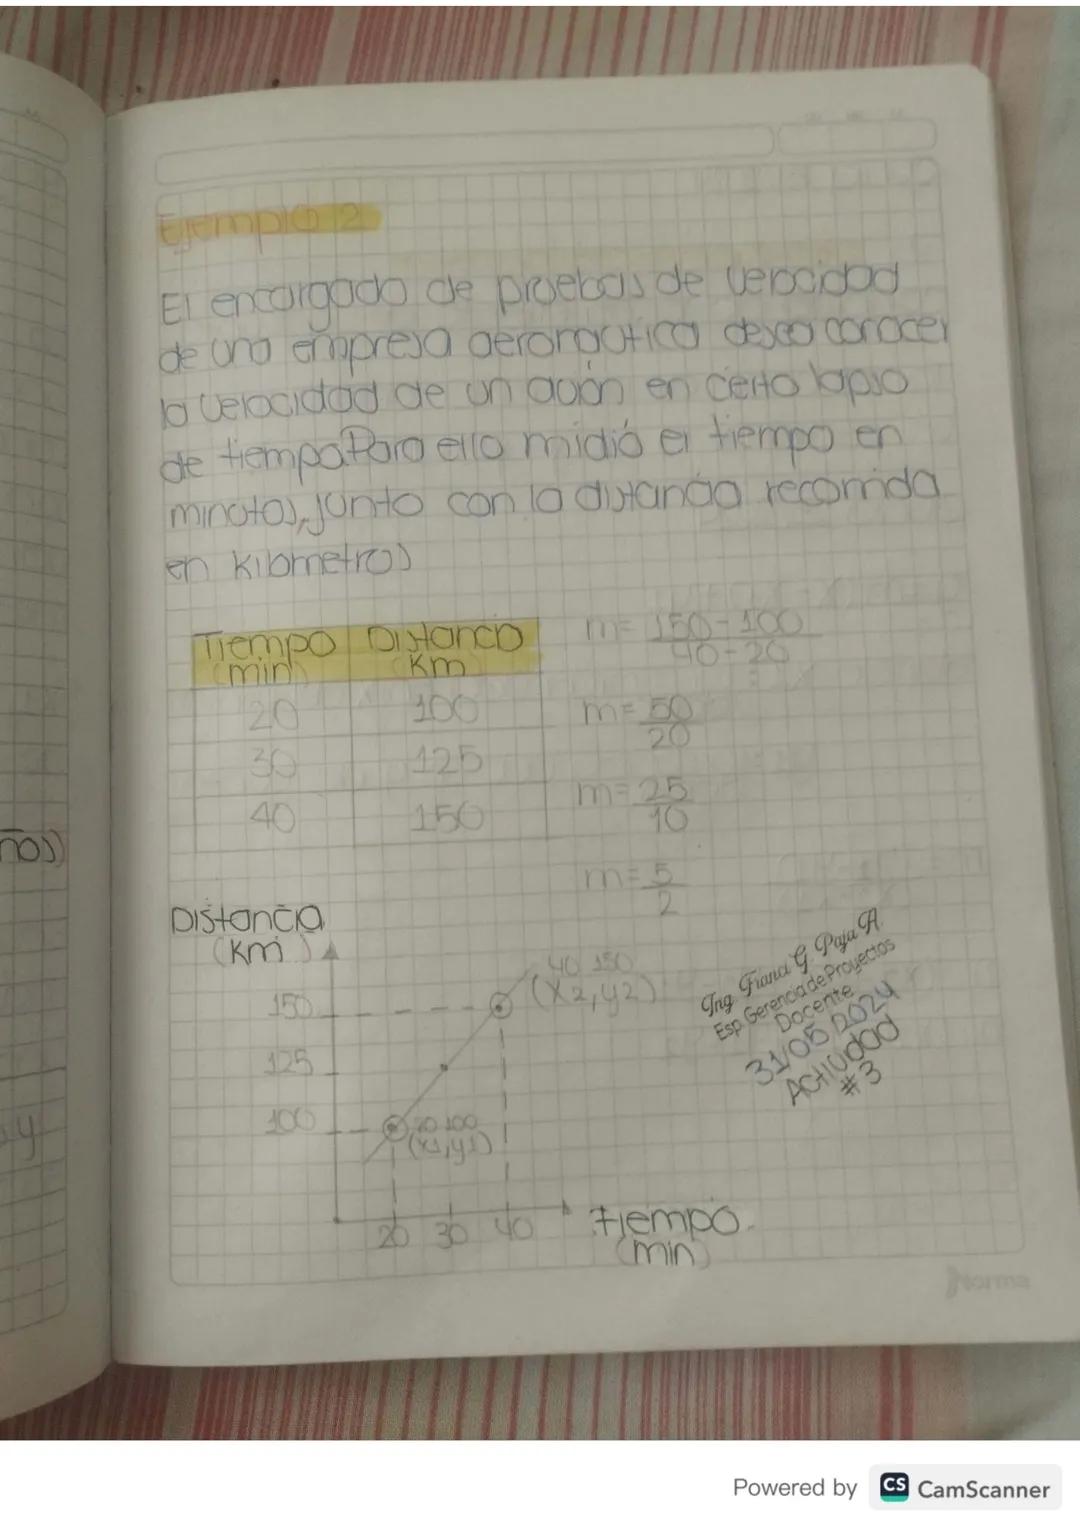 Ejemplo 2
El encargado de pruebas de velocidad
de una empresa aeronautica desea conocer
la velocidad de un avión en cierto lapso
de tiempo. Para ello midió el tiempo en
minutos, junto con la distancia recorrida
en kilómetros
Tiempo (min) Distancia Km
20 100
30 125
40 150
m= 150-100
40-20
m= 50
20
m= 25
10
m= 5
2
Distancia
(Km)
40 150
(x2, y2)
150
125
100
20 100
(x1, y1)
20 30 40
tiempo
(min)
Ing. Fiana G. Paja A.
Esp. Gerencia de Proyectos
Docente
31/05/2024
Actividad
#3
Norma
ños)
y
Powered by CS CamScanner